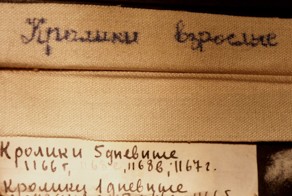 Кролики взрослые
Кролики 5дневные
1166г, 1168в, 1167г.
Кролики 1дневные